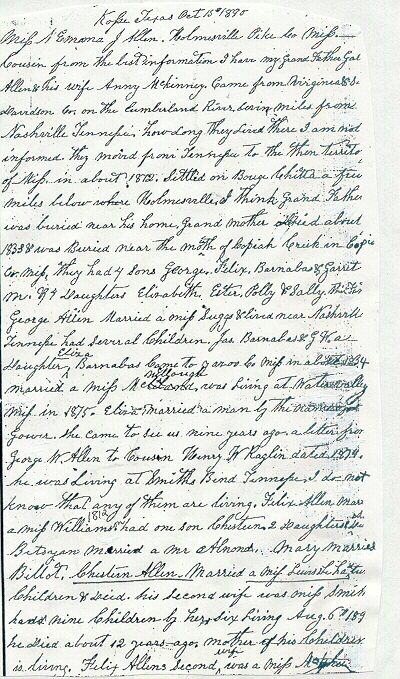 Kosse Texas Oct 15th 1890
Miss N Emma J Allen. Holmesville Pike Co Miss.
Cousin from the best information I have my Grand Father Gar
Allen & his wife Anny McKinney. Came from Virginia &
Davidson Co. on the Cumberland River. Seven miles from
Nashville Tennessee. how long they Lived there I am not
informed they moved from Tennessee to the then territo
of Miss. in about 1812. Settled on Bouge Chitta a few
miles below where Holmesville. I think Grand Father
was buried near his home. Grand mother died about
1833 & was Buried near the mouth of Copiah Creek in Copia
Co. Miss, They had 4 sons George. Felix, Barnabas & Garret
m. & 4 Daughters Elizabeth. Ester, Polly & Sally.
George Allen Married a miss Suggs & lived near Nashvill
Tennessee had Several Children. Jas. Barnabas & G. W. a
Daughter Eliza, Barnabas Came to Yazoo Co Miss in about 1834
married a Miss McCullough, was living at Watervalley
Miss. in 1875. Eliza Married a man by the name of
gower. She came to see us nine years ago. a letter from
George W. Allen to Cousin Henry W Kaglin dated 1879.
he was living at Smiths Bend Tennessee. I do not
know that any of them are living. Felix Allen Mar
a miss Williams 1812 & had one son Chesteen. 2 Daughters
Betsyan married a mr Almond. Mary married
Billot. Chesteen Allen. Married a Miss Lewis he had two
Children & Died. his second wife was miss Smith
had nine Children by her, Six Living Aug. 6th 189
he died about 12 years ago, mother of his Children
is living. Felix Allens Second wife was a Miss